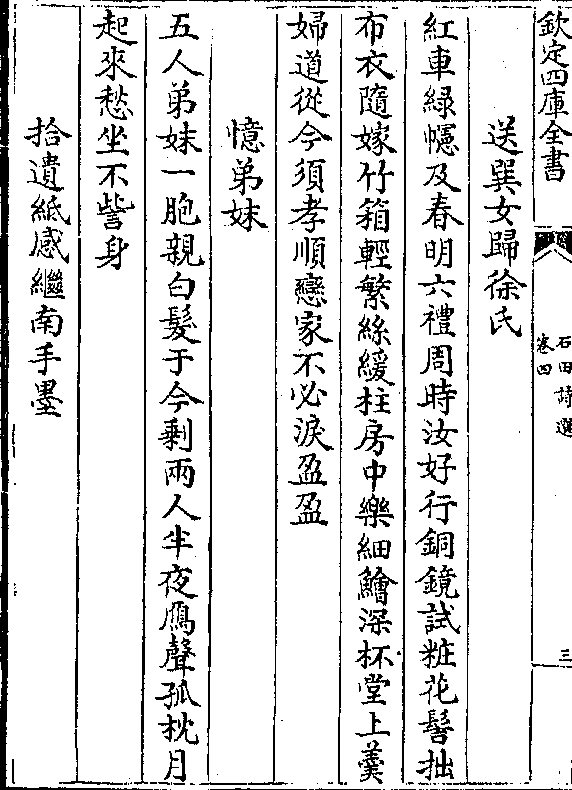 欽定四庫全書
石田詩選
卷四
三
送巽女歸徐氏
紅車緑幰及春明六禮周時汝好行銅鏡試粧花髻拙
布衣隨嫁竹箱輕繁絲緩柱房中樂細鱠深杯堂上羮
婦道從今須孝順戀家不必淚盈盈
憶弟妹
五人弟妹一胞親白髮于今剩兩人半夜鴈聲孤枕月
起來愁坐不訾身
拾遺紙感繼南手墨